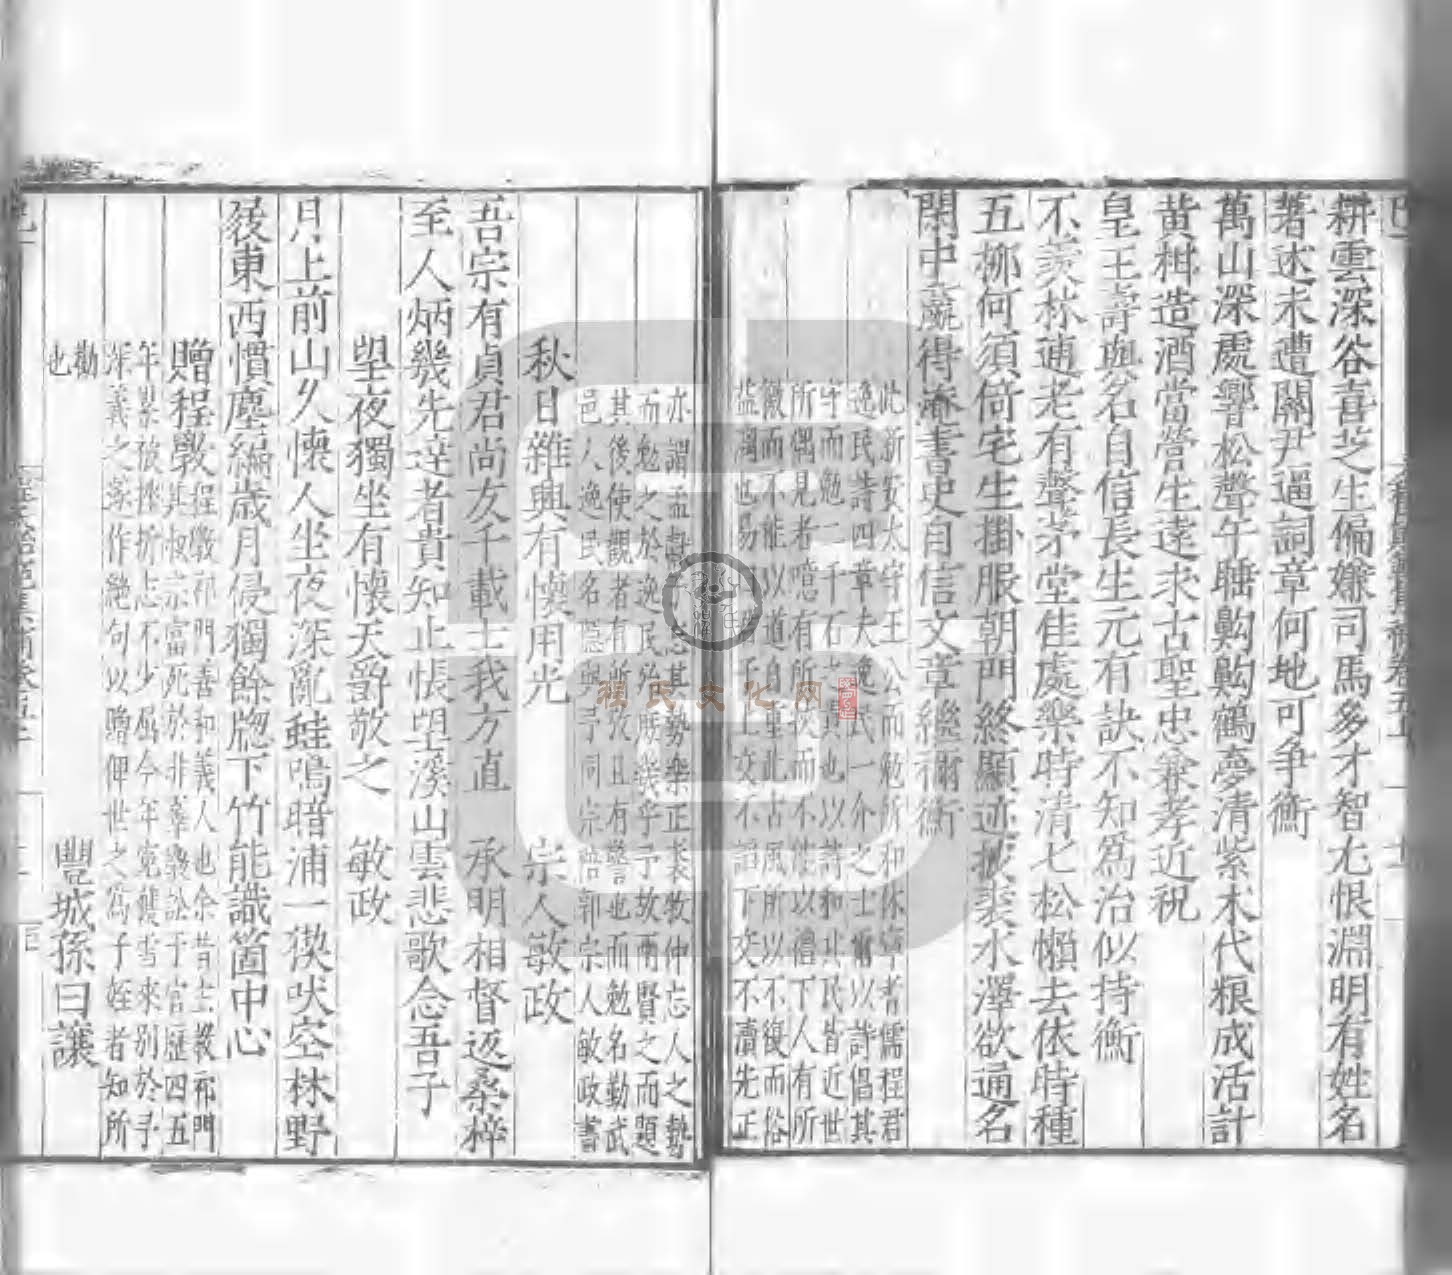 耕雲深谷喜芝生偏嫌司馬多才智尤恨淵明有姓名
著述未遭關尹逼詞章何地可爭衡
萬山深處響松聲午睡齁齁鶴夢清紫朮代粮成活計
黄柑造酒當營生遠求古聖忠兼孝近祝
皇王壽與名自信長生元有訣不知爲治似持衡
不羡林逋老有聲茅堂佳處樂時清七松懶去依時種
五柳何須倚宅生掛服朝門終顯迹披裘水澤欲通名
閑中贏得淹書史自信文章繼禰衡
此新安太守王公而勉所和休寧者儒程君
逸民詩四章夫逸民一介之士爾以詩倡其
守而勉二千石也以詩和其民皆近世
所偶見者噫有所挾而不能以禮下人有所
徽而不能以道自重此古風所以不復而俗
益漓也易上交不謟下交不瀆先正
亦謂孟獻子忘其勢樂正裘牧仲忘人之勢
而勉之於逸民殆庶幾乎予故兩賢之而題
其後使觀者有所攷且有警也而勉名勤武
邑人逸民名隱與予同宗浯郭宗人敏政書
秋日雜興有懷用光　宗人敏政
吾宗有貞君尚友千載士我方直承明相督返桑梓
至人炳幾先達者貴知止悵望溪山雲悲歌念吾子
望夜獨坐有懷天爵敬之　敏政
月上前山久懷人坐夜深亂蛙鳴暗浦一獀吠空林野
發東西慣塵編歲月侵獨餘牕下竹能識箇中心
贈程斅
程斅祁門善和義人也余昔士教祁門
其叔宗富死於非辜斅訟于官歷四五
年累被挫折志不少屈今年寃雙雪來别於予
深義之遂作絶句以贈俾世之爲子姪者知所
勸
也
豐城孫曰讓